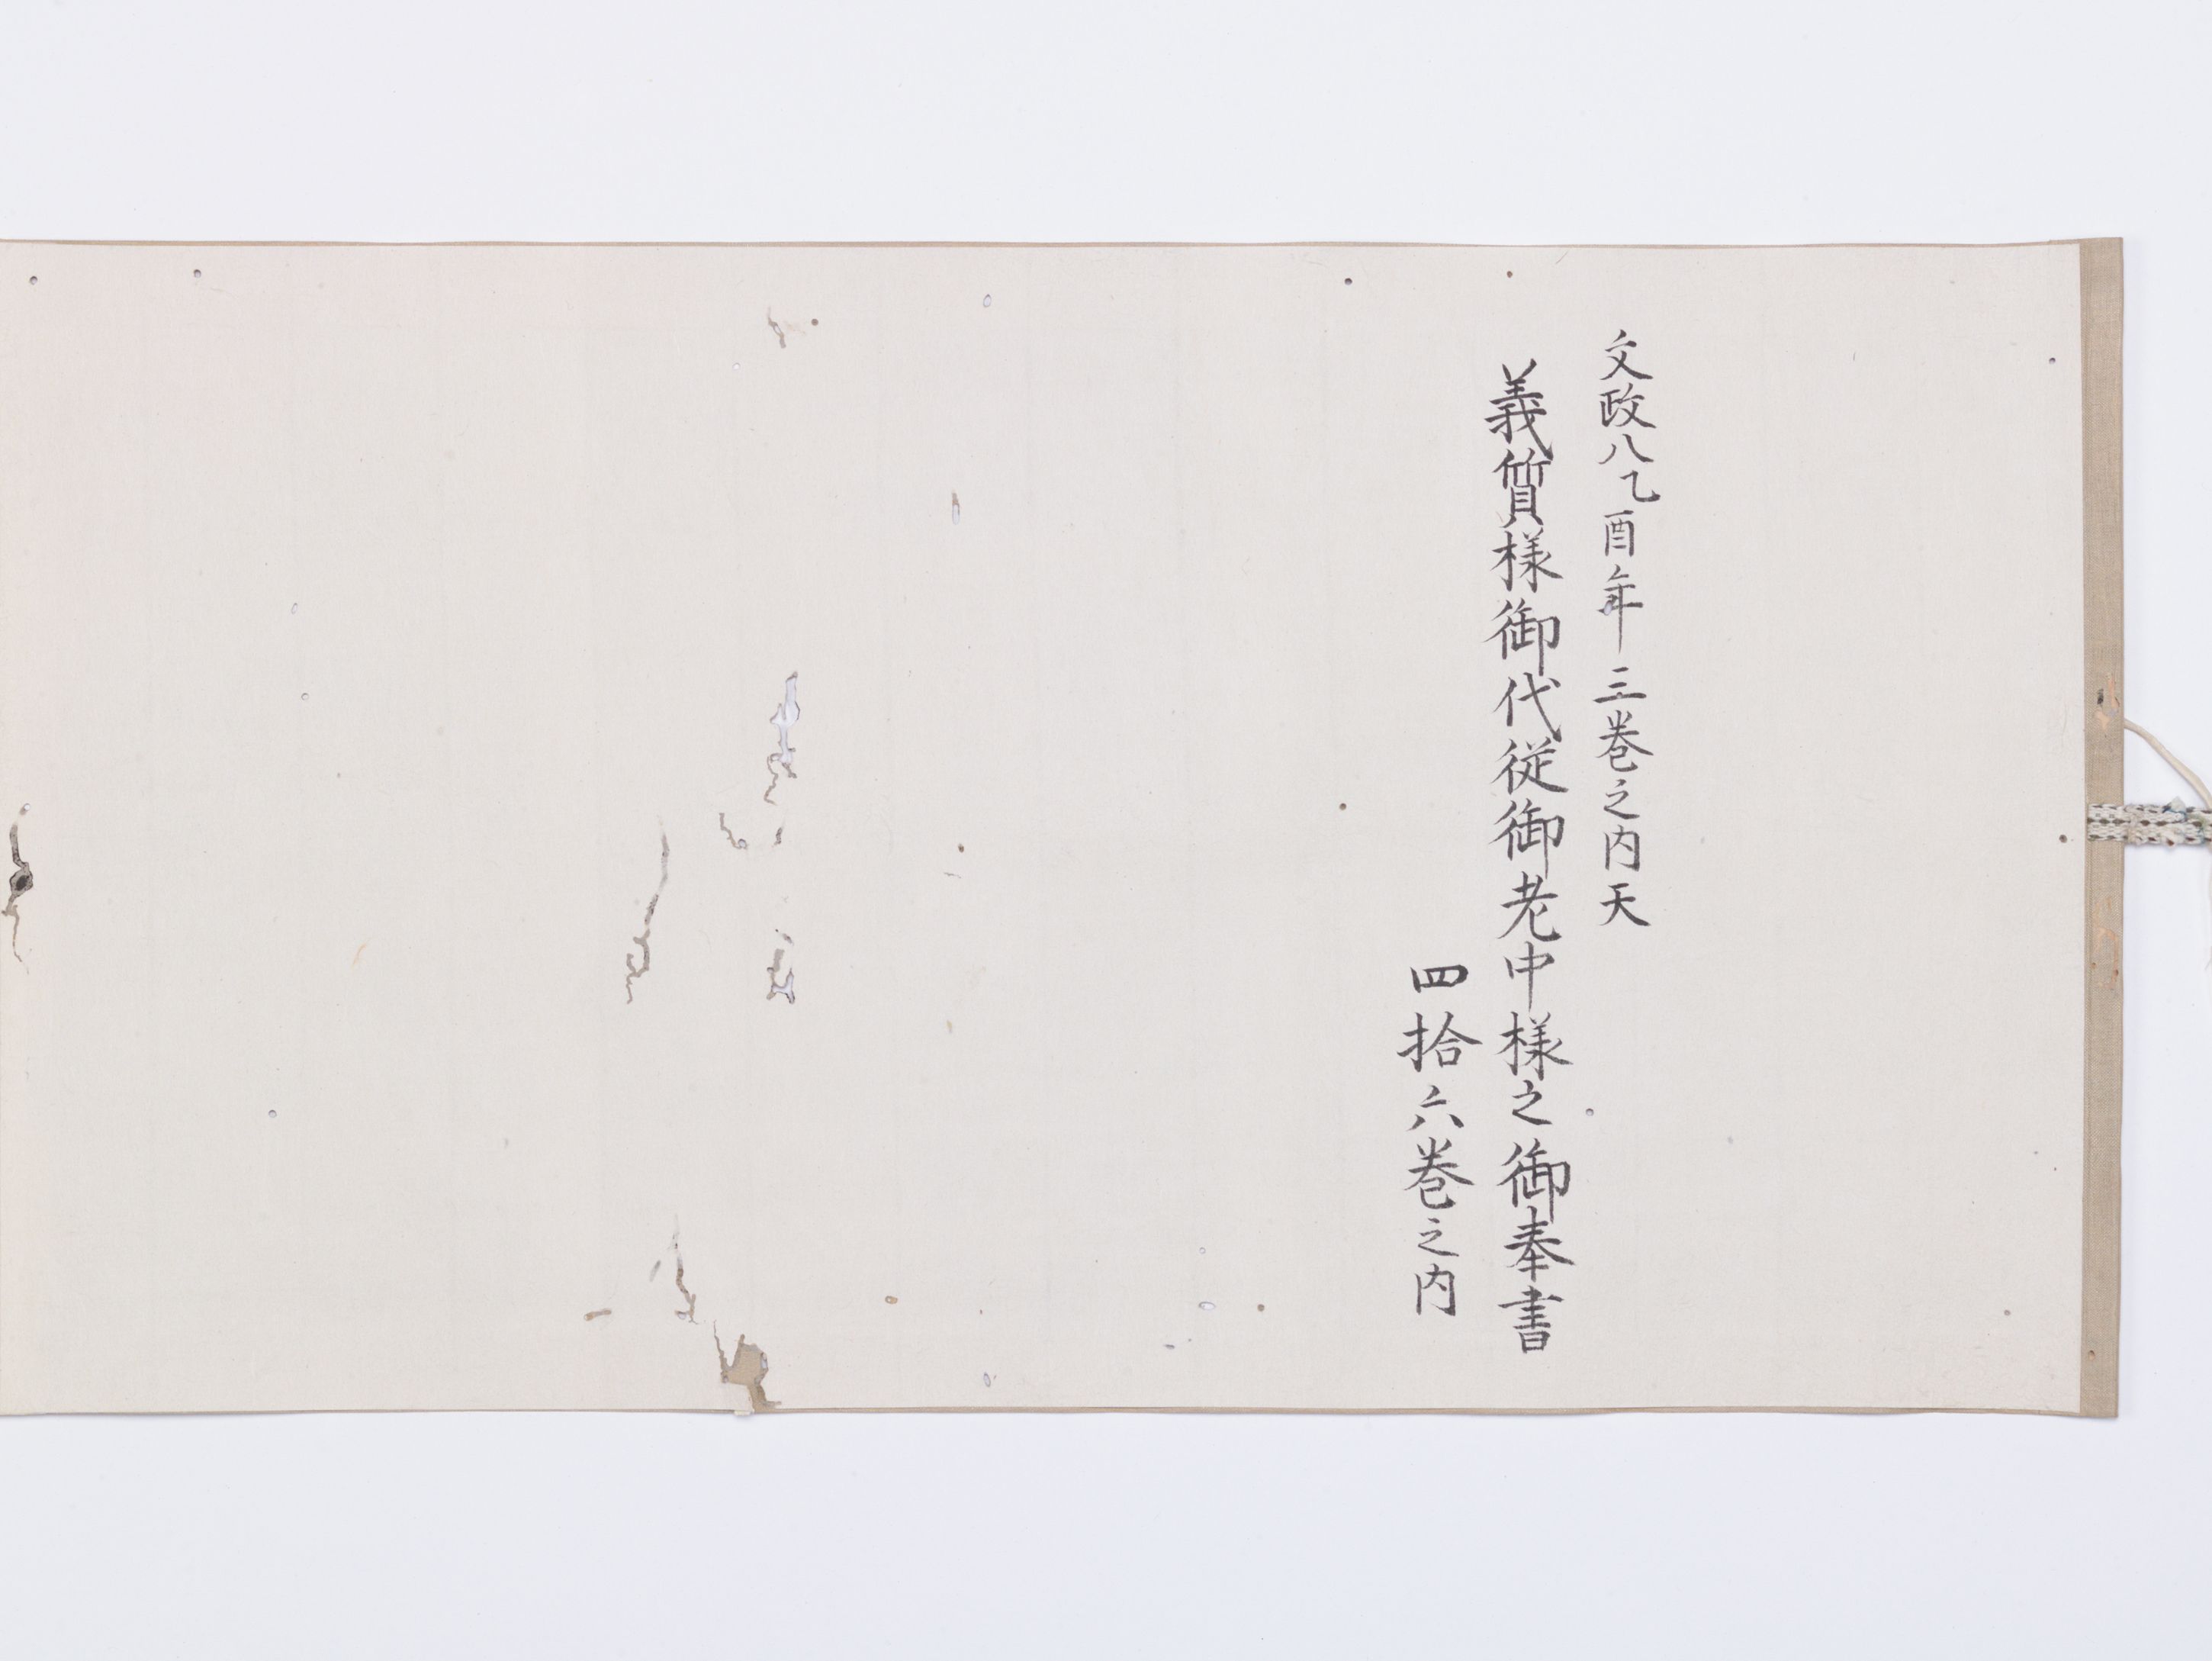 文政八乙酉年三巻之内天
義質様御代従御老中様之御奉書
四拾六巻之内